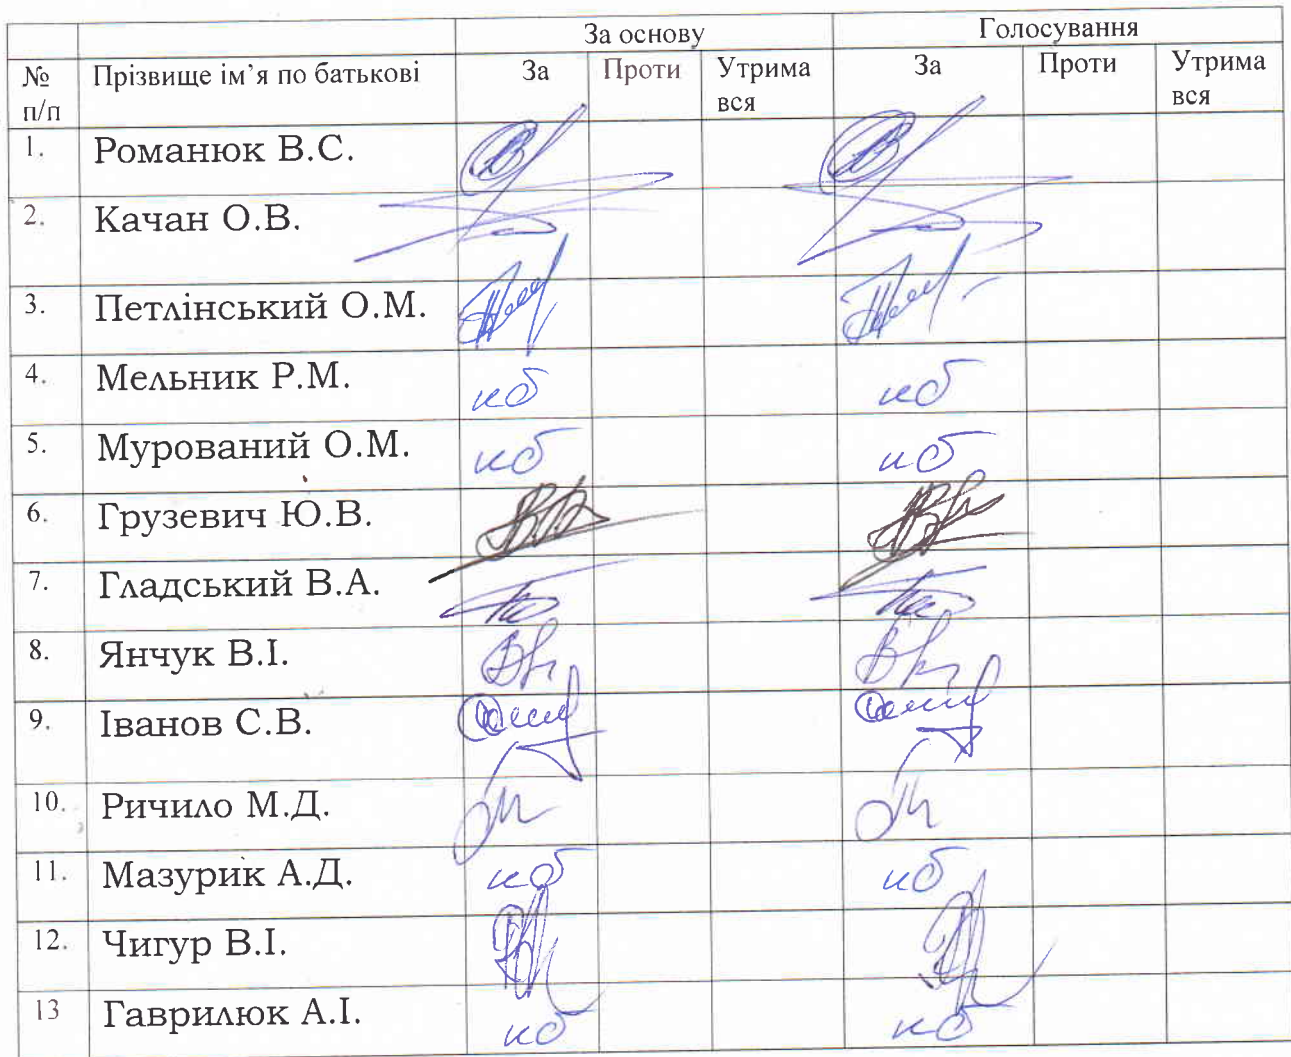 За основу Голосування
№ п/п Прізвище ім’я по батькові За Проти Утрима вся За Проти Утрима вся
1. Романюк В.С.
2. Качан О.В.
3. Петлінський О.М.
4. Мельник Р.М. нб нб
5. Мурований О.М. нб нб
6. Грузевич Ю.В.
7. Гладський В.А.
8. Янчук В.І.
9. Іванов С.В.
10. Ричило М.Д.
11. Мазурик А.Д. нб нб
12. Чигур В.І.
13 Гаврилюк А.І. нб нб